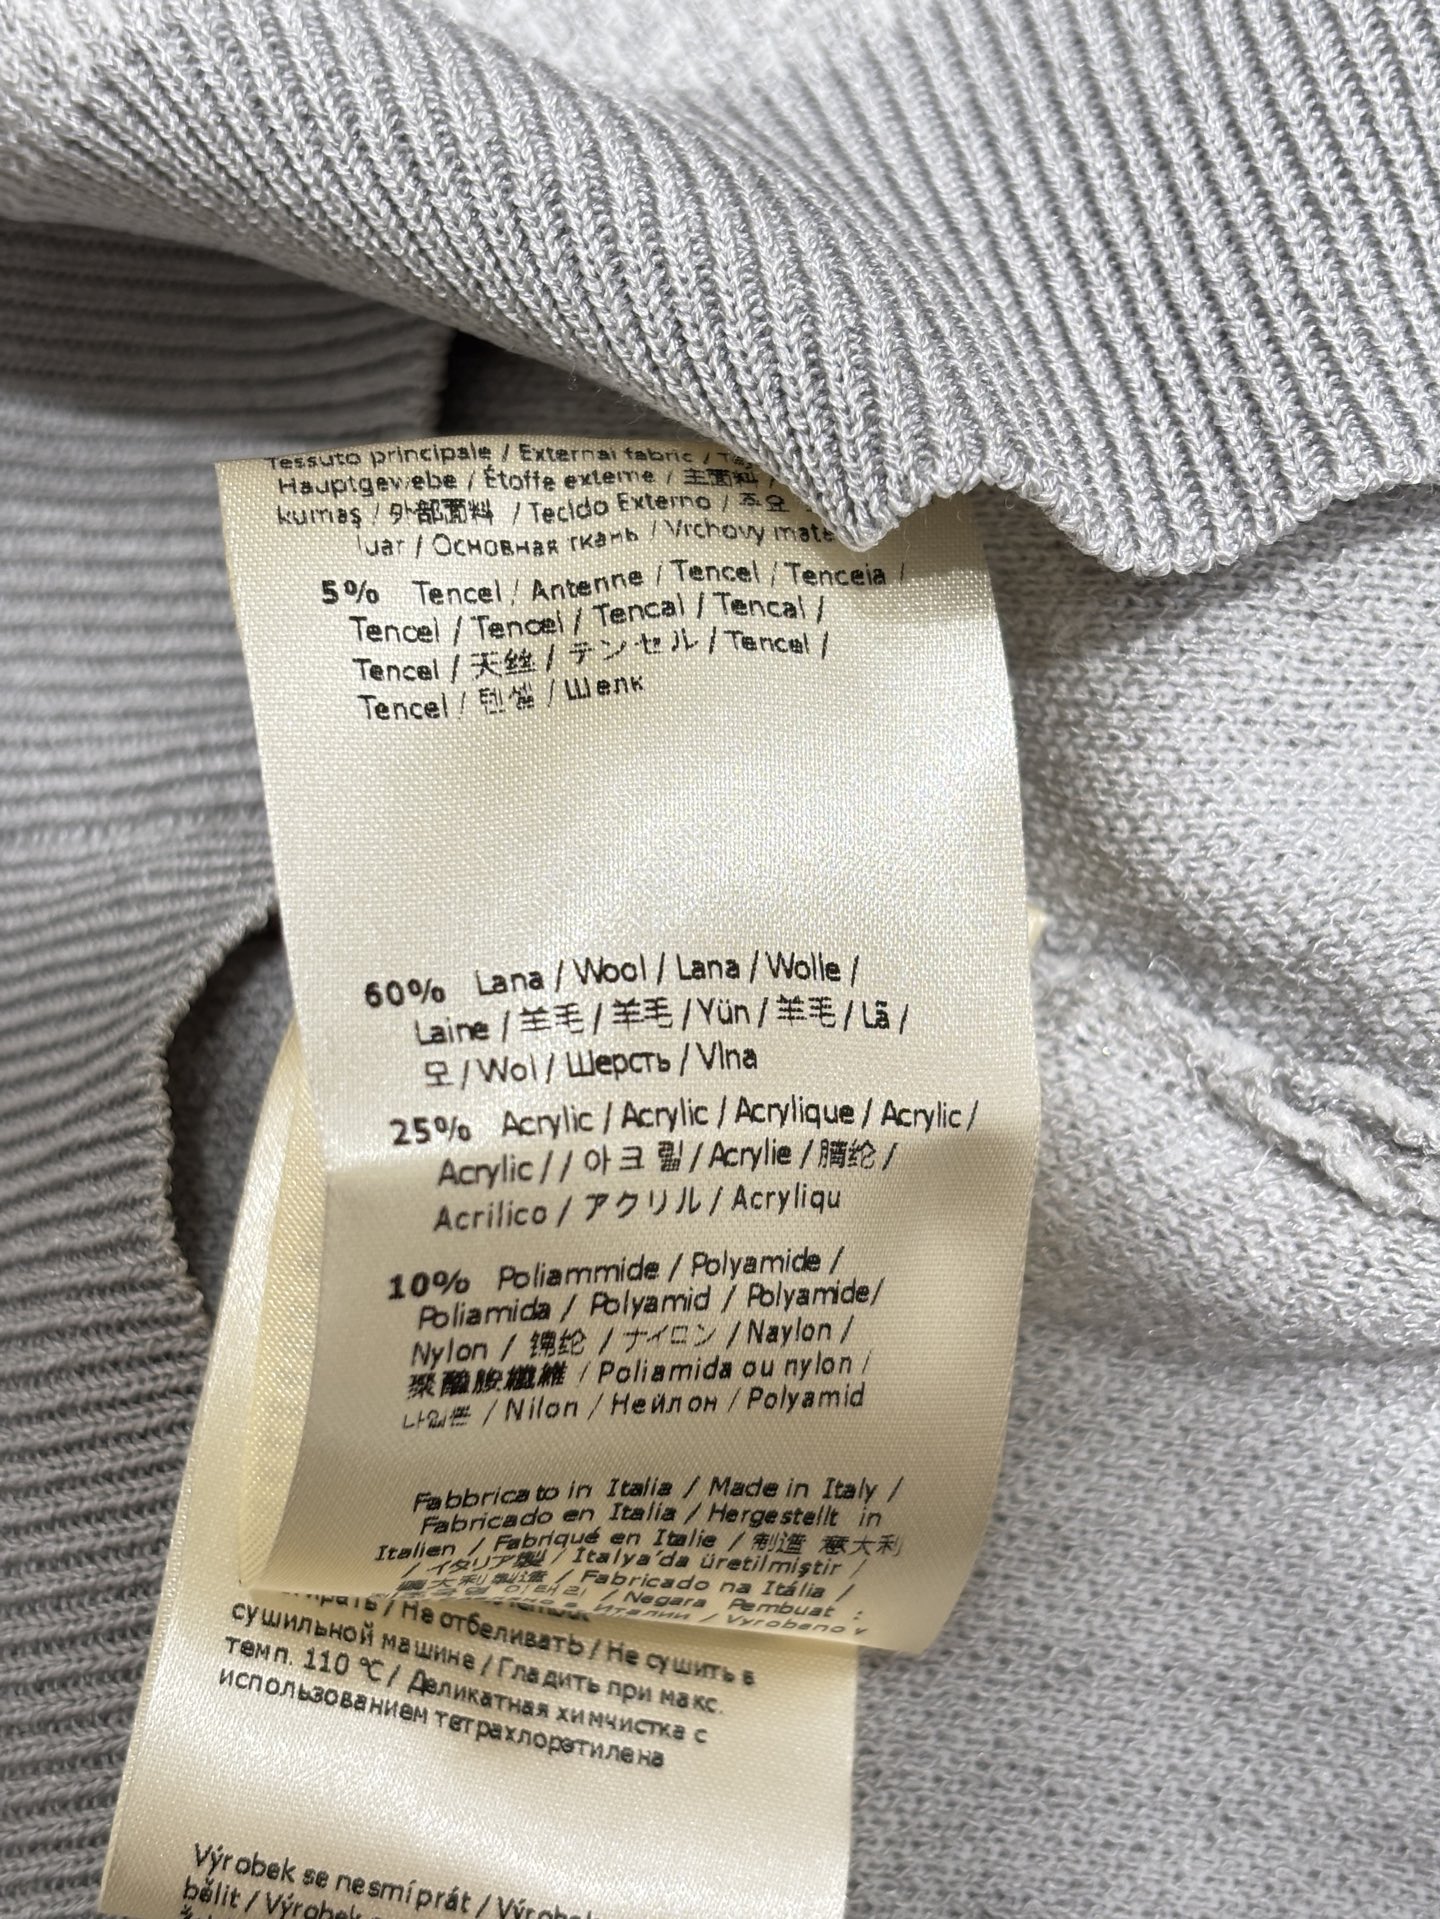 Tessuto principale / External fabric /
Hauptgewebe / Étoffe externe / 主面料 /
kumaş / 外部面料 / Tecido Externo / 주요
luar / Основная ткань / Vrchovy mate
5% Tencel / Antenne / Tencel / Tenceia /
Tencel / Tencel / Tencal / Tencal /
Tencel / 天丝 / テンセル / Tencel /
Tencel / 텐셀 / Шелк
60% Lana / Wool / Lana / Wolle /
Laine / 羊毛 / 羊毛 / Yün / 羊毛 / Lã /
모 / Wol / Шерсть / Vlna
25% Acrylic / Acrylic / Acrylique / Acrylic /
Acrylic / / 아크릴 / Acrylie / 腈纶 /
Acrilico / アクリル / Acryliqu
10% Poliammide / Polyamide /
Poliamida / Polyamid / Polyamide/
Nylon / 锦纶 / ナイロン / Naylon /
聚醯胺纖維 / Poliamida ou nylon /
나일론 / Nilon / Нейлон / Polyamid
Fabbricato in Italia / Made in Italy /
Fabricado en Italia / Hergestellt in
Italien / Fabriqué en Italie / 制造 意大利
/ イタリア製 / Italya'da üretilmiştir /
義大利製造 / Fabricado na Itália /
이태리 / Negara Pembuat :
в Италии / Vyrobeno v
/ Не отбеливать / Не сушить в
сушильной машине / Гладить при макс.
темп. 110 °C / Деликатная химчистка с
использованием тетрахлорэтилена
Výrobek se nesmí prát /
bělit /